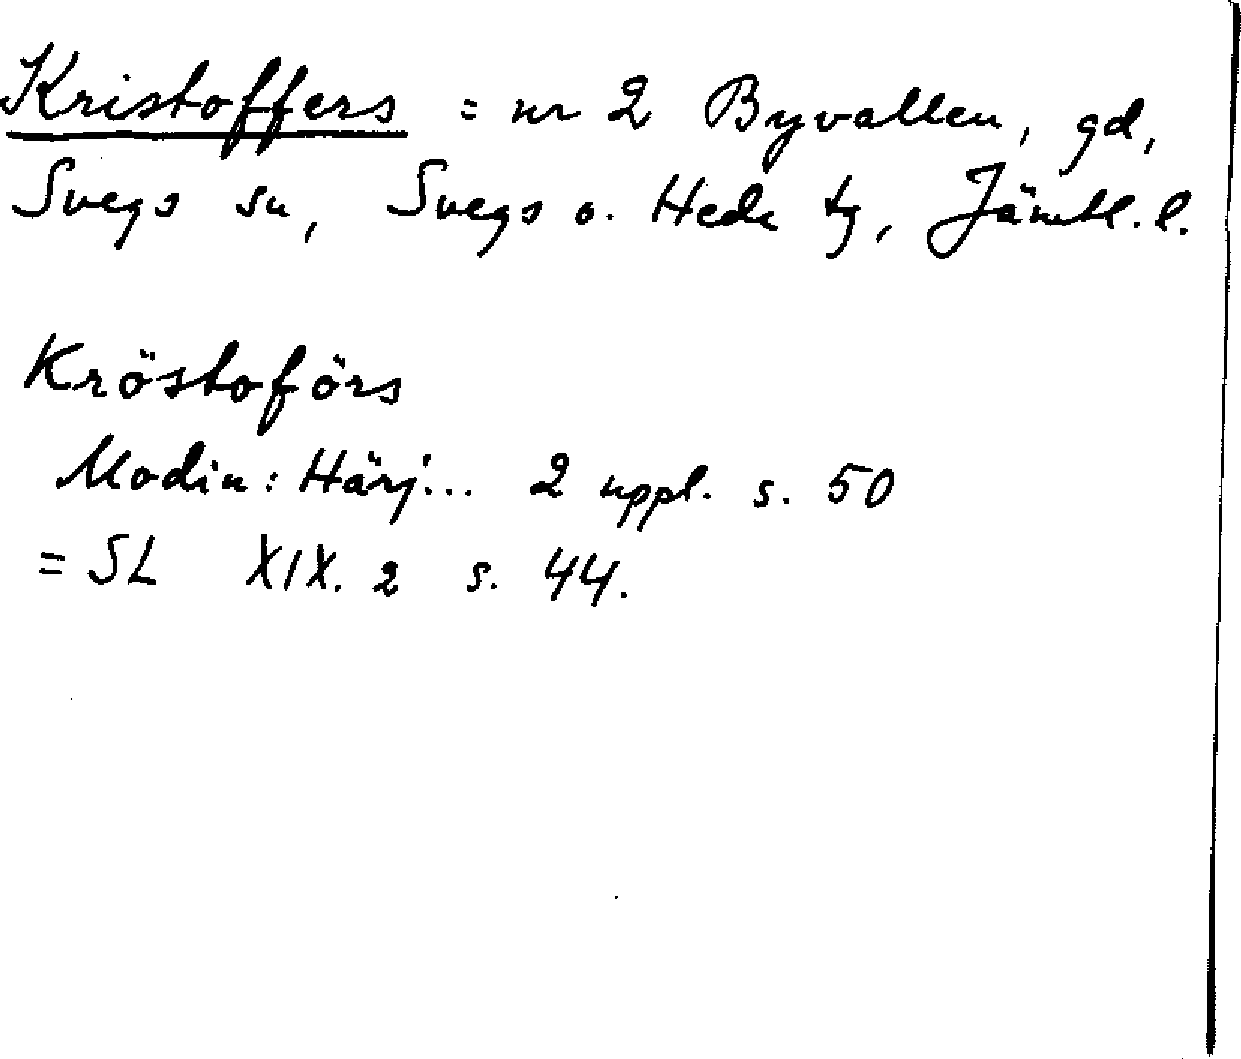 Kristoffers = nr 2 Byvallen, gd,
Svegs sn, Svegs o. Hede tg, Jämtl. l.
Kröstoförs
Modin: Härj... 2 uppl. s. 50
= SL XIX. 2 s. 44.